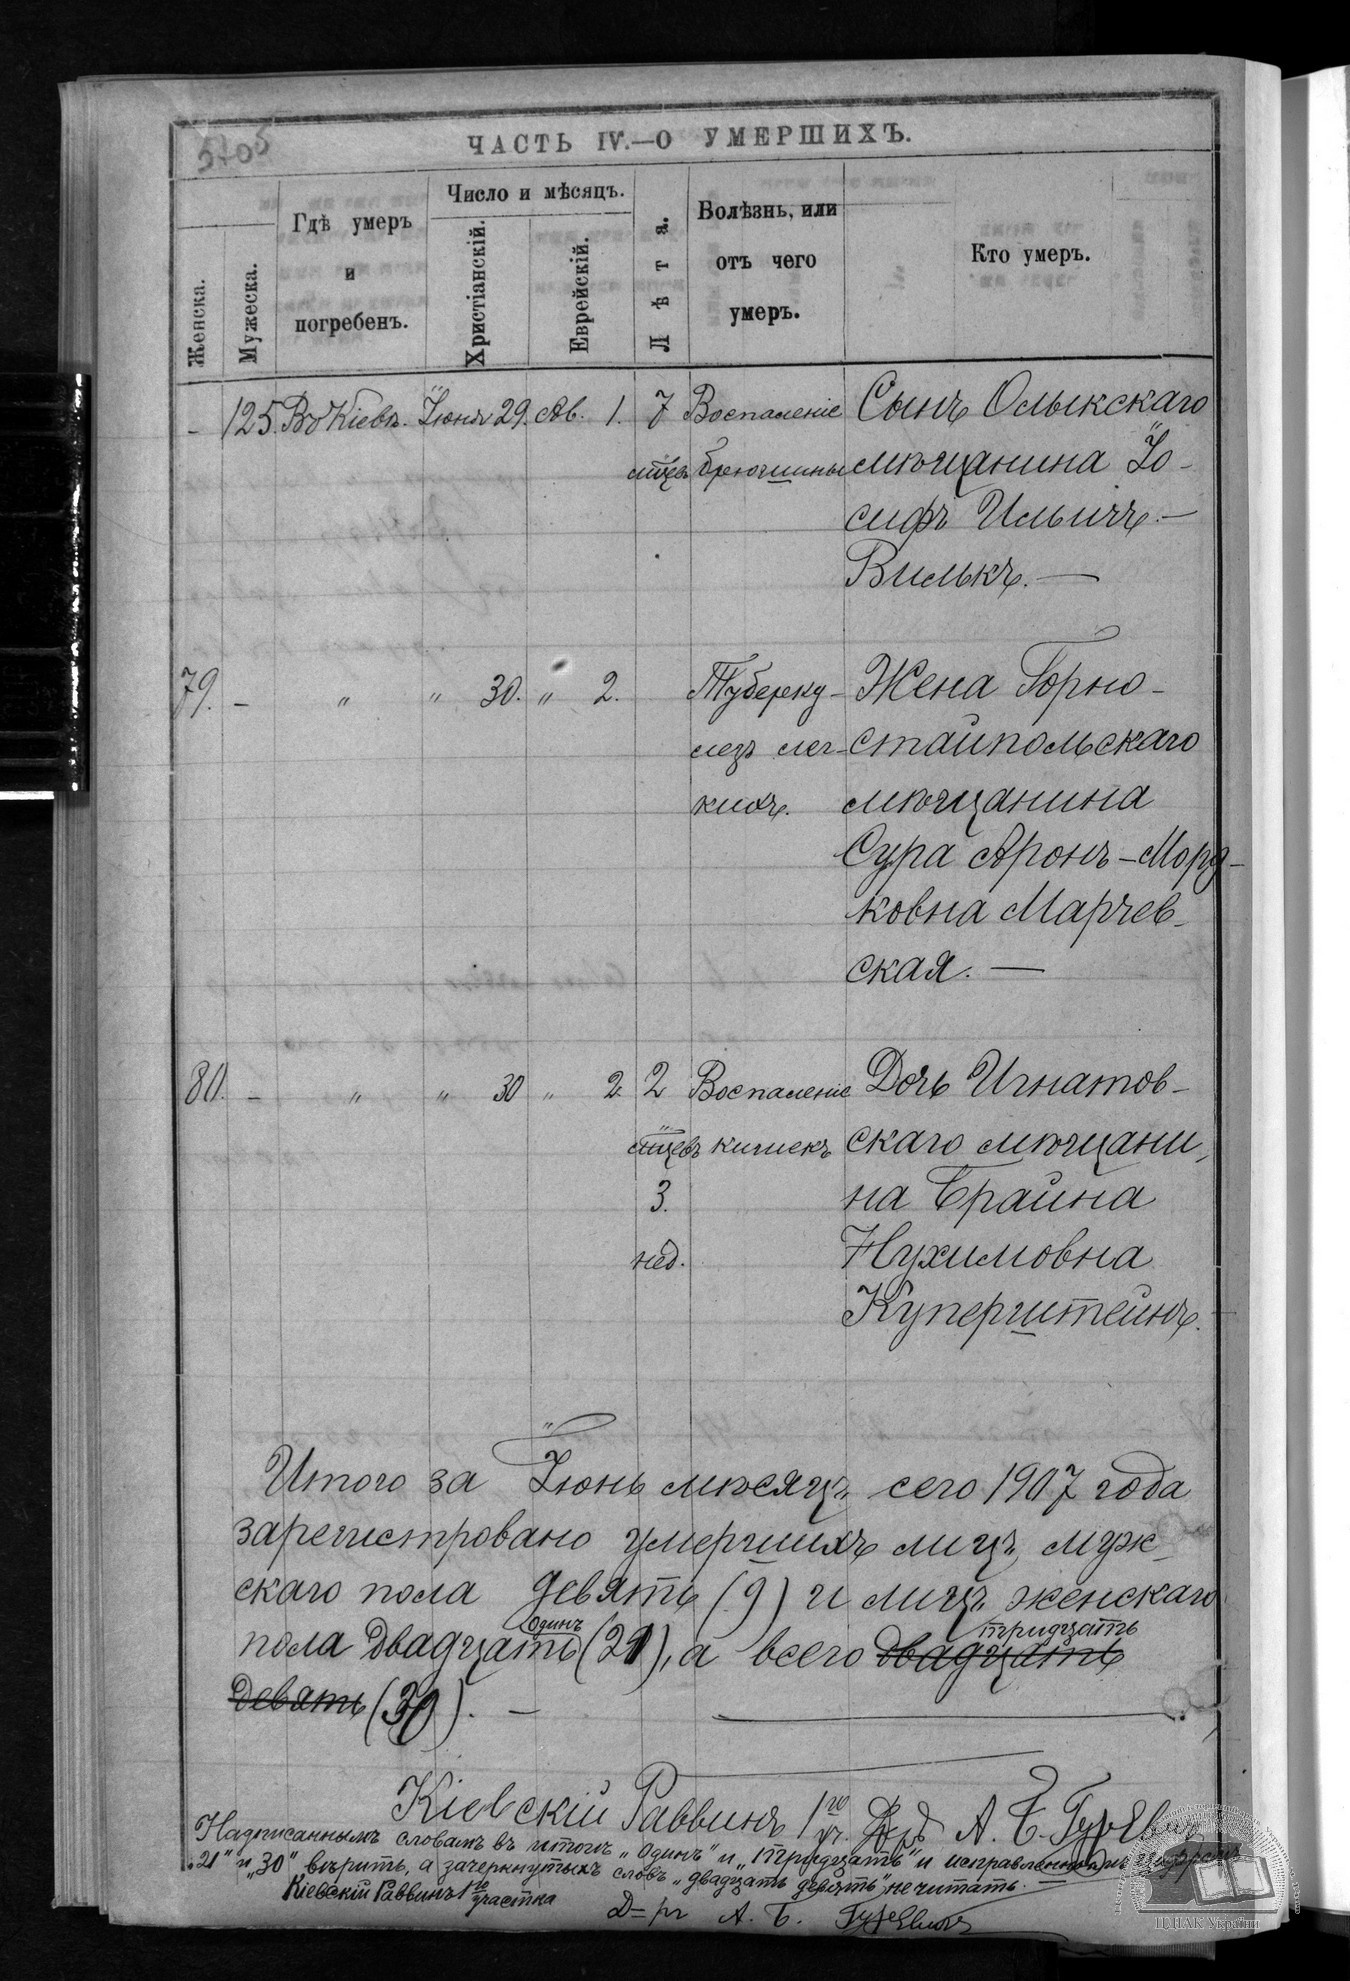 5705
ЧАСТЬ IV.—О УМЕРШИХЪ.
Женска.
Мужеска.
Гдѣ умеръ
и
погребенъ.
Число и мѣсяцъ.
Христіанскій.
Еврейскій.
Лѣта.
Болѣзнь, или
отъ чего
умеръ.
Кто умеръ.
– 125. Въ Кіевѣ. Іюня 29. Ав. 1. 7 Воспаленіе Сынъ Олыкскаго
мцевъ брюшины мѣщанина Іо-
сифъ Ильичъ —
Вилькъ. —
79. – " " 30. " 2. Туберку- Жена Горно-
лезъ лег- стайпольскаго
кихъ. мѣщанина
Сура Аронъ-Морд-
ковна Марчев-
ская. —
80. – " " 30 " 2 2 Воспаленіе Дочь Игнатов-
мцевъ кишекъ скаго мѣщани-
3. на Брайна
нед. Нухимовна
Куперштейнъ.
Итого за Іюнь мѣсяцъ сего 1907 года
зарегистровано умершихъ лицъ муж-
скаго пола девять (9) и лицъ женскаго
одинъ тридцать
пола двадцать (21), а всего двадцать
девять (30). —
Кіевскій Раввинъ 1го уч. Д-ръ А. Б. Гуревичъ
Надписаннымъ словамъ въ итогѣ „одинъ" и „тридцать" и исправленнымъ цифрамъ
„21" и „30" вѣрить, а зачеркнутыхъ словъ „двадцать девять" не читать. —
Кіевскій Раввинъ 1го участка
Д-ръ А. Б. Гуревичъ
ЦДІАК України